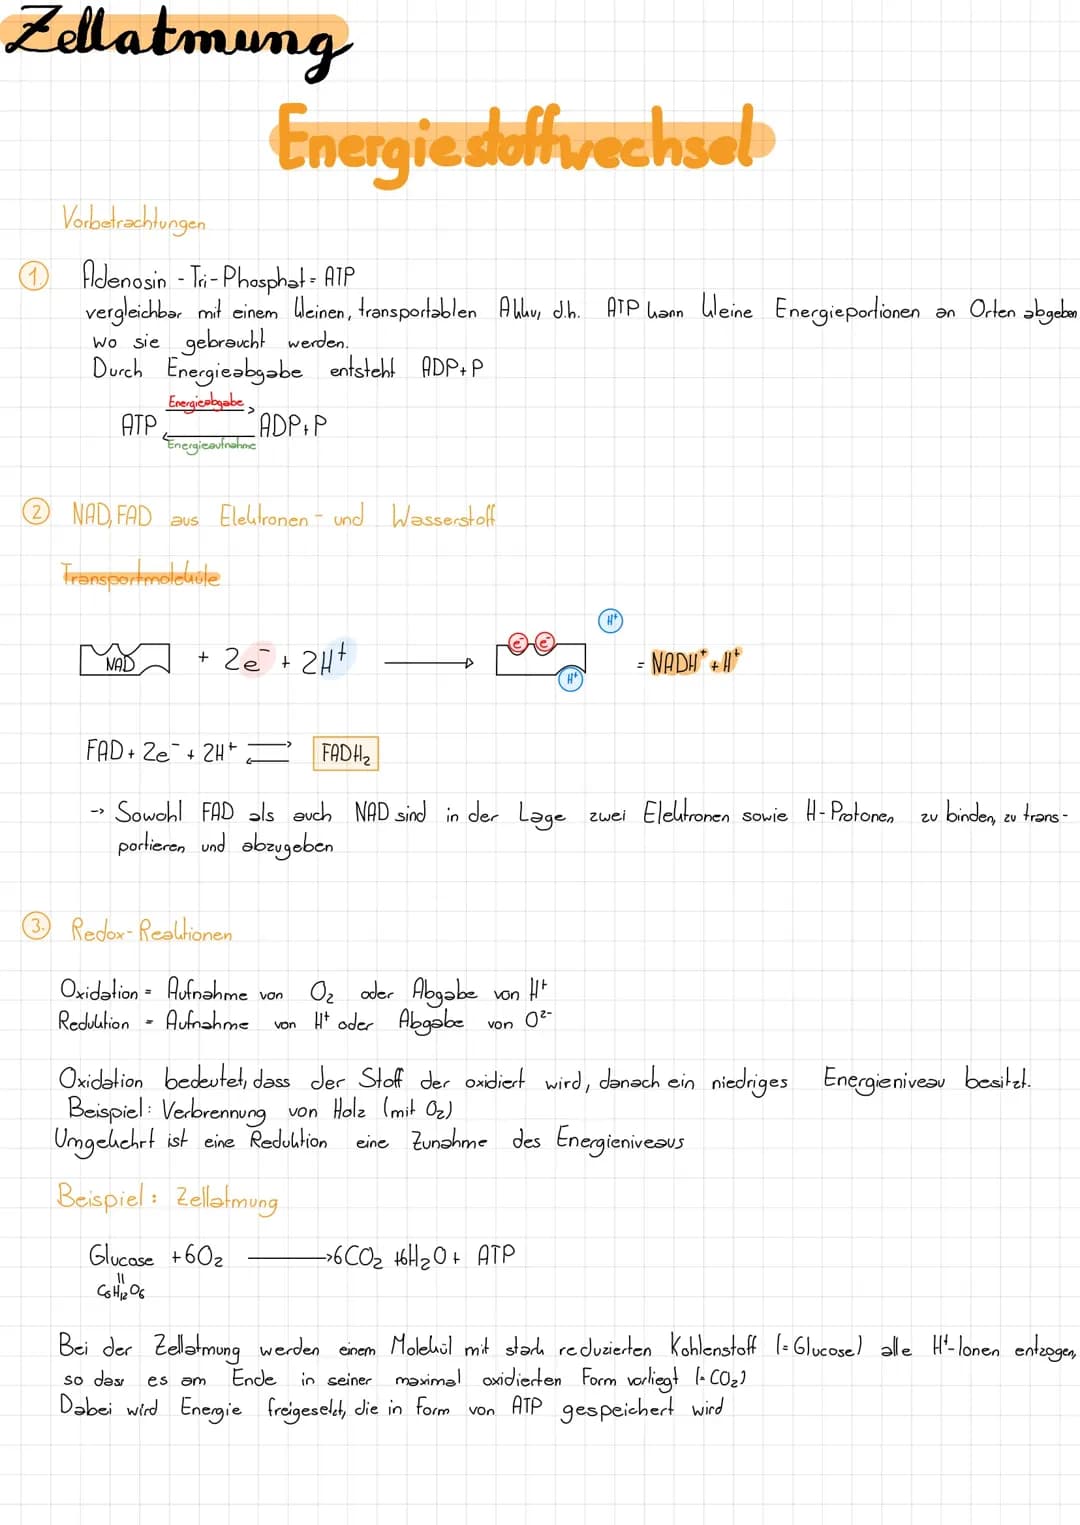 Zellatmung
Energiestoffwechsel
Vorbetrachtungen
1. Adenosin - Tri - Phosphat = ATP
vergleichbar mit einem kleinen, transportablen Akku, d.h. ATP kann kleine Energieportionen an Orten abgeben
wo sie gebraucht werden.
Durch Energieabgabe entsteht ADP + P
Energieabgabe
ATP ⇌ ADP + P
Energieaufnahme
2 NAD, FAD aus Elektronen - und Wasserstoff
Transportmoleküle
H⁺
e⁻ e⁻
NAD + 2e⁻ + 2H⁺ → = NADH⁺ + H⁺
H⁺
FAD + 2e⁻ + 2H⁺ ⇌ FADH₂
→ Sowohl FAD als auch NAD sind in der Lage zwei Elektronen sowie H-Protonen zu binden, zu trans-
portieren und abzugeben
3. Redox - Reaktionen
Oxidation = Aufnahme von O₂ oder Abgabe von H⁺
Reduktion = Aufnahme von H⁺ oder Abgabe von O²⁻
Oxidation bedeutet, dass der Stoff der oxidiert wird, danach ein niedriges Energieniveau besitzt.
Beispiel: Verbrennung von Holz (mit O₂)
Umgekehrt ist eine Reduktion eine Zunahme des Energieniveaus
Beispiel: Zellatmung
Glucose + 6O₂ → 6CO₂ + 6H₂O + ATP
=
C₆H₁₂O₆
Bei der Zellatmung werden einem Molekül mit stark reduzierten Kohlenstoff (= Glucose) alle H⁺-Ionen entzogen,
so dass es am Ende in seiner maximal oxidierten Form vorliegt (= CO₂)
Dabei wird Energie freigesetzt, die in Form von ATP gespeichert wird